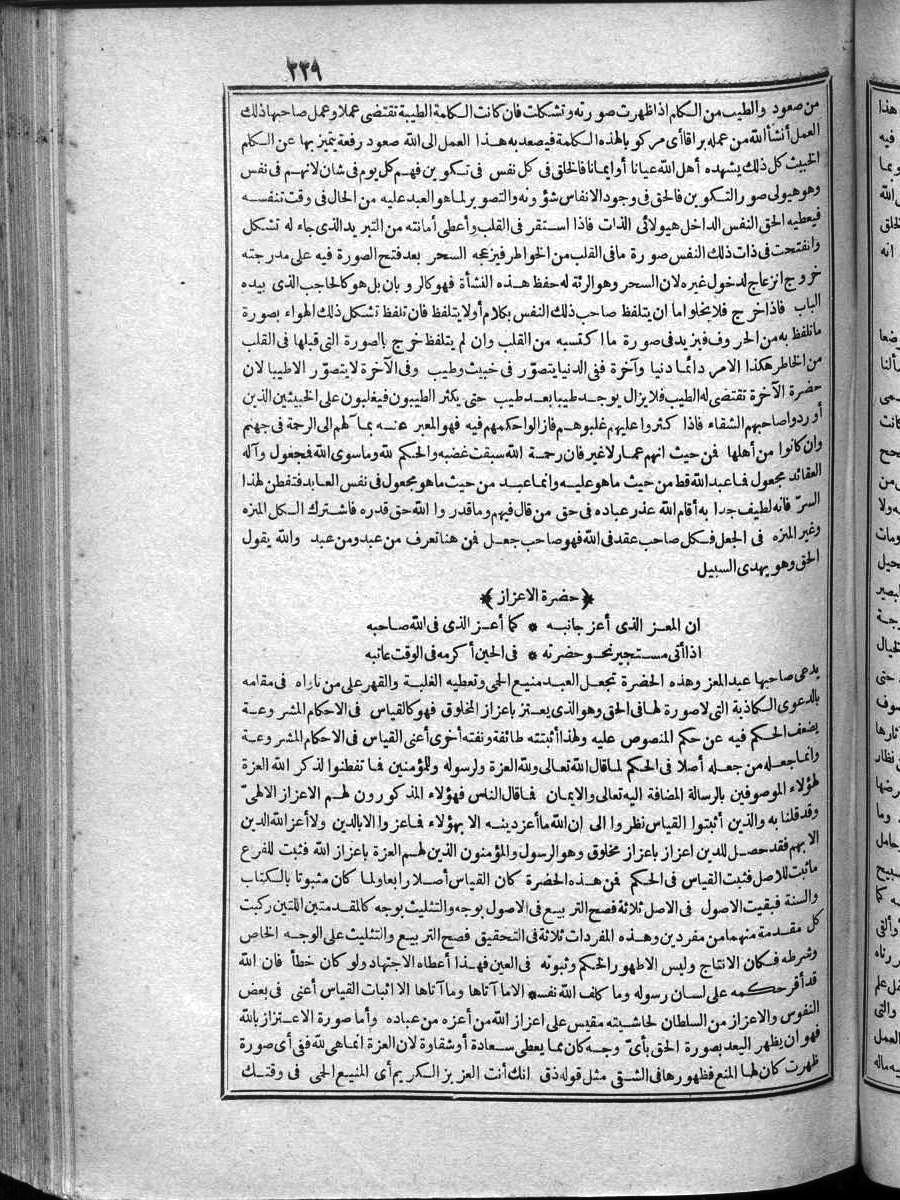 ٢٣٩
من صعود والطيب من الكلم اذا ظهرت صورته وتشكلت فان كانت الكلمة الطيبة تقتضى عملا وعمل صاحبها ذلك
العمل أنشأ الله من عمله براقا أى مركوبا لهذه الكلمة فيصعد به هذا العمل الى الله صعود رفعة يتميز بها عن الكلم
الخبيث كل ذلك يشهده أهل الله عيانا أو ايمانا فالخلق فى كل نفس فى تكوين فهم كل يوم فى شان لانهم فى نفس
وهو هيولى صور التكوين فالحق فى وجود الانفاس شؤونه والتصوير لما هو العبد عليه من الحال فى وقت تنفسه
فيعطيه الحق النفس الداخل هيولائى الذات فاذا استقر فى القلب وأعطى أمانته من التبريد الذى جاء له تشكل
وانفتحت فى ذات ذلك النفس صورة ما فى القلب من الخواطر فيزعجه السحر بعد فتح الصورة فيه على مدرجته
خروج انزعاج لدخول غيره لان السحر وهو الرئة له حفظ هذه النشأة فهو كالروبان بل هو كالحاجب الذى بيده
الباب فاذا خرج فلا يخلوا ما ان يتلفظ صاحب ذلك النفس بكلام أولا يتلفظ فان تلفظ تشكل ذلك الهواء بصورة
ما تلفظ به من الحروف فيزيد فى صورة ما اكتسبه من القلب وان لم يتلفظ خرج بالصورة التى قبلها فى القلب
من الخاطر هكذا الامر دائما دنيا وآخرة فى الدنيا يتصوّر فى خبيث وطيب وفى الآخرة لا يتصوّر الاطيبا لان
حضرة الآخرة تقتضى له الطيب فلا يزال يوجد طيبا بعد طيب حتى يكثر الطيبون فيغلبون على الخبيثين الذين
أوردوا صاحبهم الشقاء فاذا كثروا عليهم غلبوهم فازالوا حكمهم فيه فهو المعبر عنه بما لهم الى الرحمة فى جهنم
وان كانوا من أهلها فمن حيث انهم عمار لا غير فان رحمة الله سبقت غضبه والحكم لله وما سوى الله فمجعول وآله
العقائد مجعول فما عبد الله قط من حيث ما هو عليه وانما عبد من حيث ما هو مجعول فى نفس العابد فتفطن لهذا
السرّ فانه لطيف جدا به أقام الله عذر عباده فى حق من قال فيهم وما قدروا الله حق قدره فاشترك الكل المنزه
وغير المنزه فى الجعل فكل صاحب عقد فى الله فهو صاحب جعل فمن هنا تعرف من عبد ومن عبد والله يقول
الحق وهو يهدى السبيل
﴿حضرة الاعزاز﴾
ان المعز الذى أعز جانبه * كما أعز الذى فى الله صاحبه
اذا أتى مستجير نحو حضرته * فى الحين أكرمه فى الوقت عاتبه
يدعى صاحبها عبد المعز وهذه الحضرة تجعل العبد منيع الحمى وتعطيه الغلبة والقهر على من ناواه فى مقامه
بالدعوى الكاذبة التى لا صورة لها فى الحق وهو الذى يعتز باعزاز المخلوق فهو كالقياس فى الاحكام المشروعة
يضعف الحكم فيه عن حكم المنصوص عليه ولهذا أثبتته طائفة ونفته أخرى أعنى القياس فى الاحكام المشروعة
وانما جعله من جعله أصلا فى الحكم لما قال الله تعالى ولله العزة ولرسوله وللمؤمنين فما تفطنوا لذكر الله العزة
لهؤلاء الموصوفين بالرسالة المضافة اليه تعالى والايمان فما قال الناس فهؤلاء المذكورون لهم الاعزاز الالهىّ
وقد قلنا به والذين أثبتوا القياس نظروا الى ان الله ما أعز دينه الا بهؤلاء فما عزوا الا بالدين ولا أعز الله الدين
الا بهم فقد حصل للدين اعزاز باعزاز مخلوق وهو الرسول والمؤمنون الذين لهم العزة باعزاز الله فثبت للفرع
ما ثبت للاصل فثبت القياس فى الحكم فمن هذه الحضرة كان القياس أصلا رابعا ولما كان مثبوتا بالكتاب
والسنة فبقيت الاصول فى الاصل ثلاثة فصح التربيع فى الاصول بوجه والتثليث بوجه كالمقدمتين اللتين ركبت
كل مقدمة منهما من مفردين وهذه المفردات ثلاثة فى التحقيق فصح التربيع والتثليث على الوجه الخاص
وشرطه فكان الانتاج وليس الاظهور الحكم وثبوته فى العين فهذا أعطاه الاجتهاد ولو كان خطأ فان الله
قد أقر حكمه على لسان رسوله وما كلف الله نفسا الا ما آتاها وما آتاها الا اثبات القياس أعنى فى بعض
النفوس والاعزاز من السلطان لحاشيته مقيس على اعزاز الله من أعزه من عباده وأما صورة الاعتزاز بالله
فهو ان يظهر العبد بصورة الحق بأىّ وجه كان مما يعطى سعادة أو شقاوة لان العزة انما هى لله ففى أى صورة
ظهرت كان لها المنع فظهورها فى الشقى مثل قوله ذق انك أنت العزيز الكريم أى المنيع الحمى فى وقتك